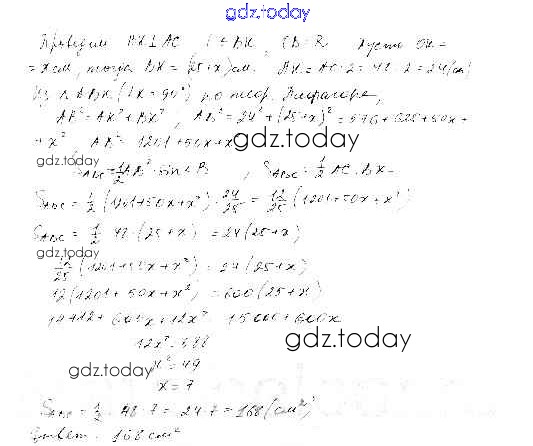 gdz.today
Проведём BK⊥AC, O∈BK, OB=R. Пусть OK=
=x см, тогда BK=(25+x) см. AK=AC:2=48:2=24(см)
Из △ABK (∠K=90°) по теор. Пифагора,
AB²=AK²+BK², AB²=24²+(25+x)²=576+625+50x+
+x², AB²=1201+50x+x² gdz.today
gdz.today S_ABC=1/2 AB²·sin∠B, S_ABC=1/2 AC·BK=
S_ABC=1/2(1201+50x+x²)·24/25=12/25(1201+50x+x²)
S_ABC=1/2·48·(25+x)=24(25+x)
gdz.today gdz.today
12/25(1201+50x+x²)=24(25+x)
12(1201+50x+x²)=600(25+x)
14412+600x+12x²=15000+600x
12x²=588
gdz.today
x²=49
gdz.today
x=7
S_ABC=1/2·48·7=24·7=168(см²)
gdz.today
Ответ: 168 см²